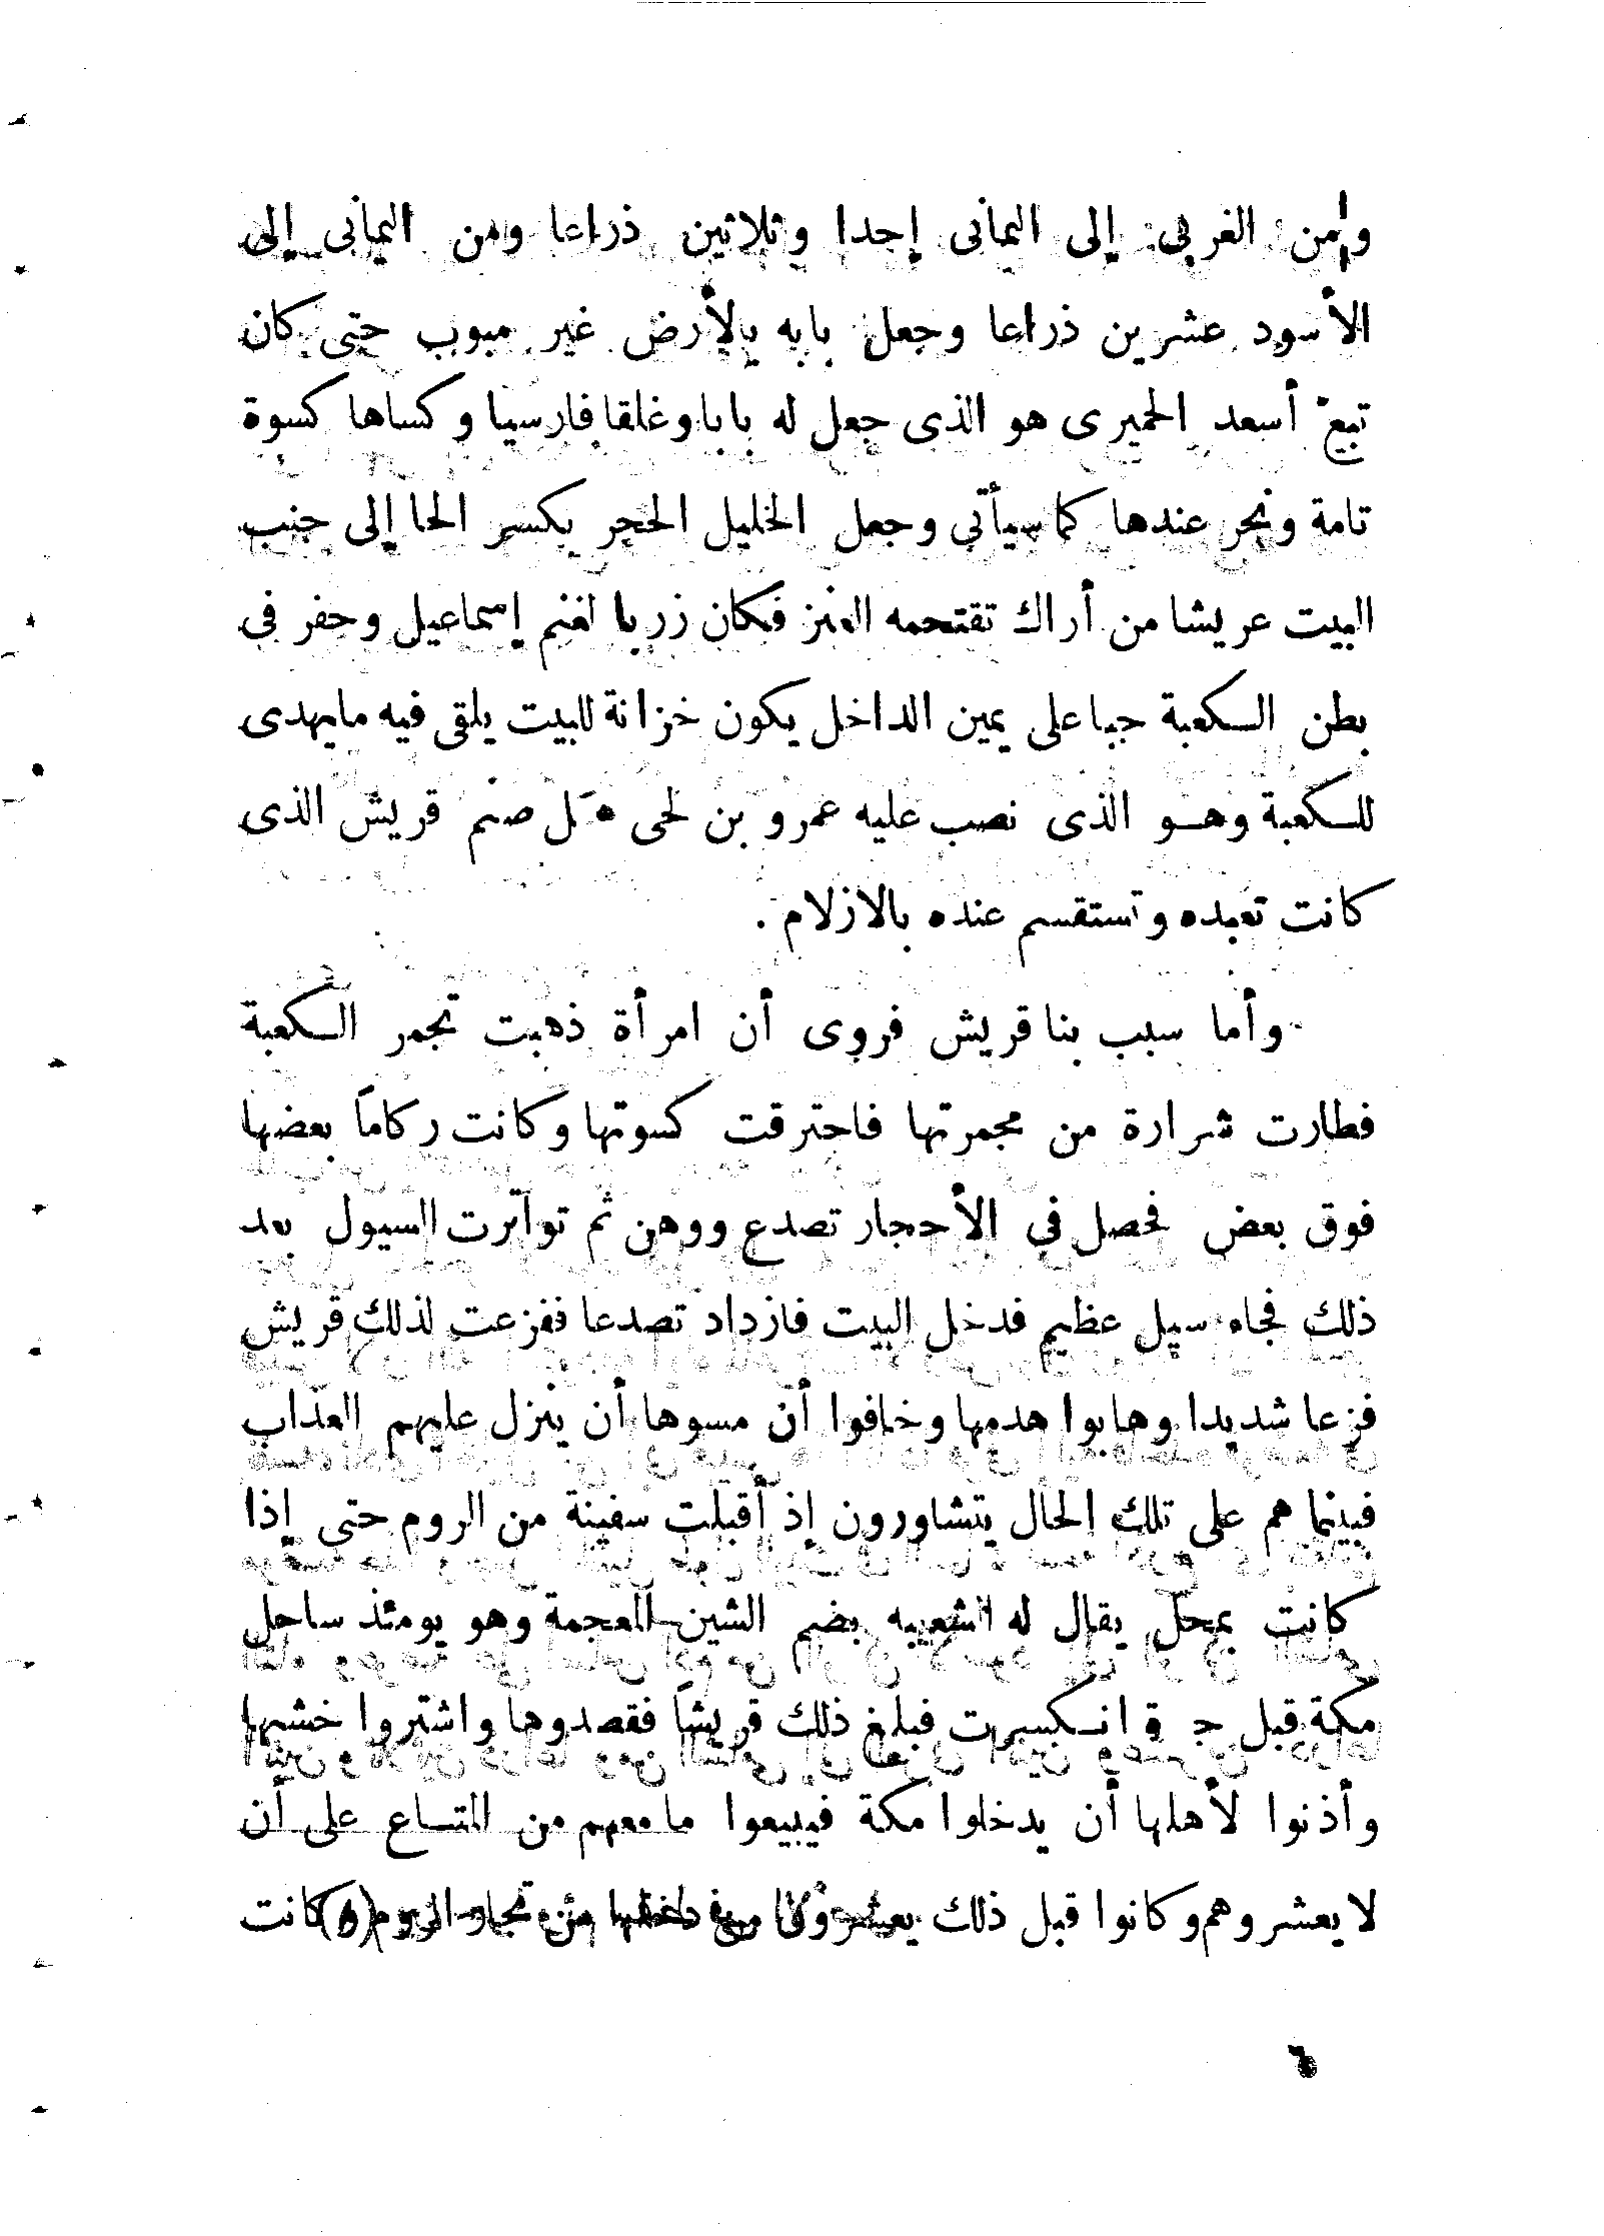 ومن الغربى إلى اليمانى إحدا وثلاثين ذراعا ومن اليمانى إلى
الأسود عشرين ذراعا وجعل بابه بالأرض غير مبوب حتى كان
تبع أسعد الحميرى هو الذى جعل له بابا وغلقا فارسيا وكساها كسوة
تامة ونحر عندها كما سيأتى وجعل الخليل الحجر بكسر الحا إلى جنب
البيت عريشا من أراك تقتحمه العنز فكان زربا لغنم إسماعيل وحفر فى
بطن الكعبة جبا على يمين الداخل يكون خزانة للبيت يلقى فيه ما يهدى
للكعبة وهو الذى نصب عليه عمرو بن لحى هبل صنم قريش الذى
كانت تعبده وتستقسم عنده بالازلام .
وأما سبب بنا قريش فروى أن امرأة ذهبت تجمر الكعبة
فطارت شرارة من مجمرتها فاحترقت كسوتها وكانت ركاماً بعضها
فوق بعض فحصل فى الأحجار تصدع ووهن ثم تواترت السيول بعد
ذلك فجاء سيل عظيم فدخل البيت فازداد تصدعا ففزعت لذلك قريش
فزعا شديدا وهابوا هدمها وخافوا أن مسوها أن ينزل عليهم العذاب
فبينما هم على تلك الحال يتشاورون إذ أقبلت سفينة من الروم حتى إذا
كانت بمحل يقال له الشعيبه بضم الشين المعجمة وهو يومئذ ساحل
مكة قبل جدة انكسرت فبلغ ذلك قريشاً فقصدوها واشتروا خشبها
وأذنوا لأهلها أن يدخلوا مكة فيبيعوا ما معهم من المتاع على أن
لا يعشروهم وكانوا قبل ذلك يعشرون من دخلها من تجار الروم كانت
٦